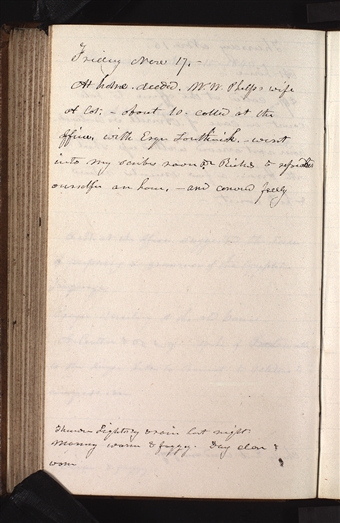 Friday Nov 17.-
At home. deeded. W. W. Phelps & wife
at Cot; - about 10. called at the
office, with Esqr Southwick. - went
into my scribes room. Dr Richds & refreshed
ourselfes an hour, - and convd freely
Thunder Lightng & rain last night.
Morning warm & foggy. Day clear &
warm